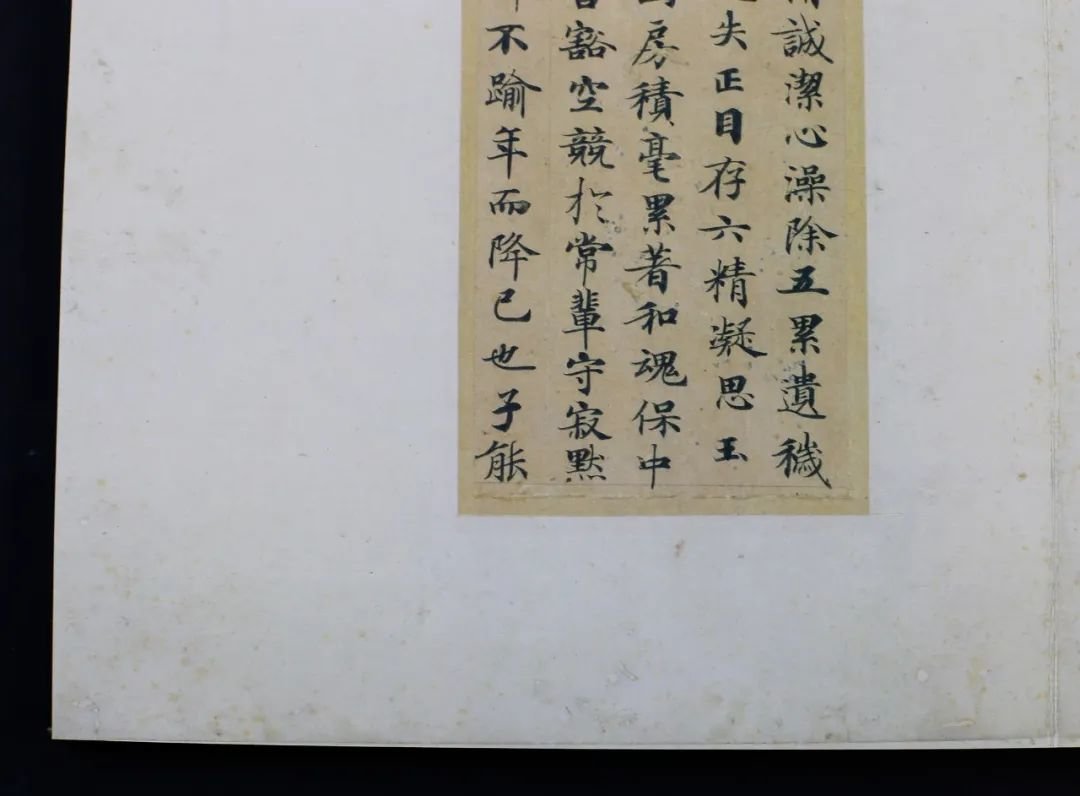 誠潔心澡除五累遺穢
失正目存六精凝思玉
房積毫累著和魂保中
豁空競於常輩守寂默
不踰年而降已也子能